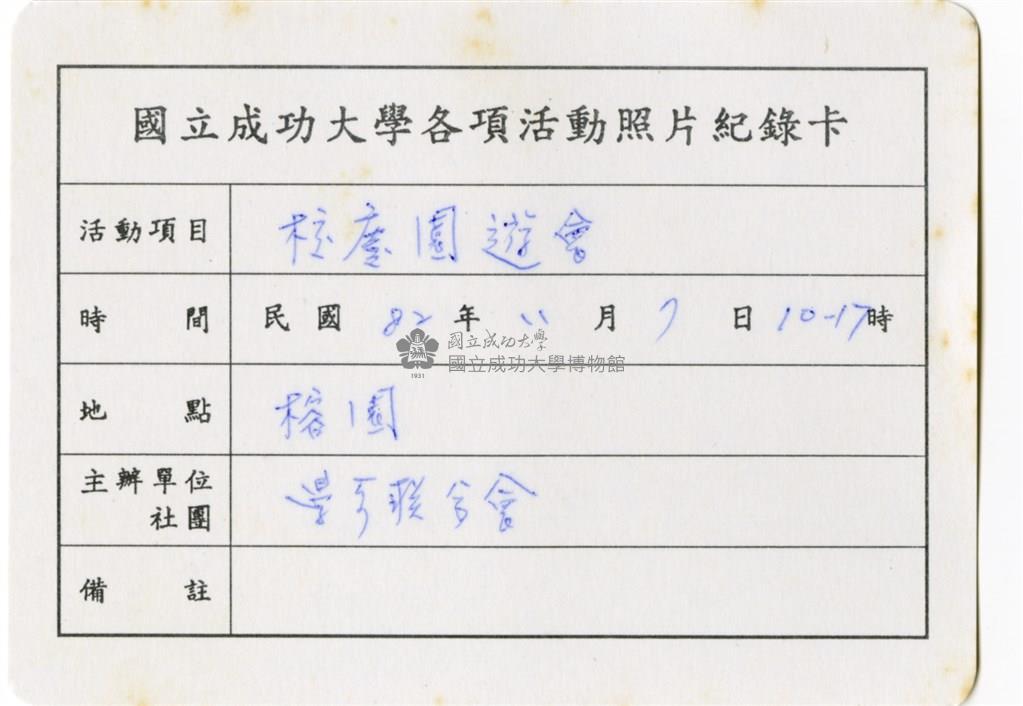 國立成功大學各項活動照片紀錄卡
活動項目 校慶園遊會
時間 民國 82 年 11 月 7 日 10-17時
國立成功大學
國立成功大學博物館
1931
地點 榕園
主辦單位社團 學生聯合會
備註